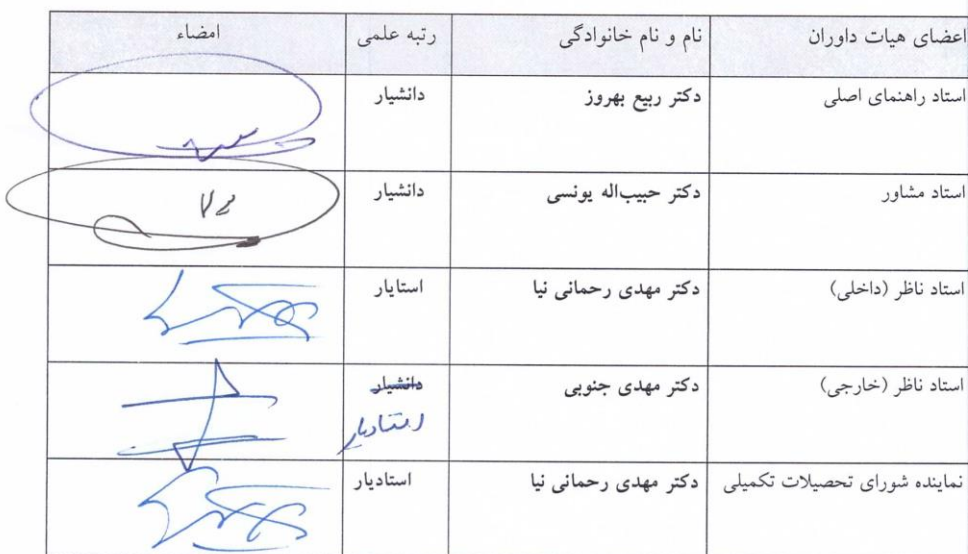 اعضای هیات داوران نام و نام خانوادگی رتبه علمی امضاء
استاد راهنمای اصلی دکتر ربیع بهروز دانشیار
استاد مشاور دکتر حبیب‌اله یونسی دانشیار
استاد ناظر (داخلی) دکتر مهدی رحمانی نیا استایار
استاد ناظر (خارجی) دکتر مهدی جنوبی دانشیار
استادیار
نماینده شورای تحصیلات تکمیلی دکتر مهدی رحمانی نیا استادیار